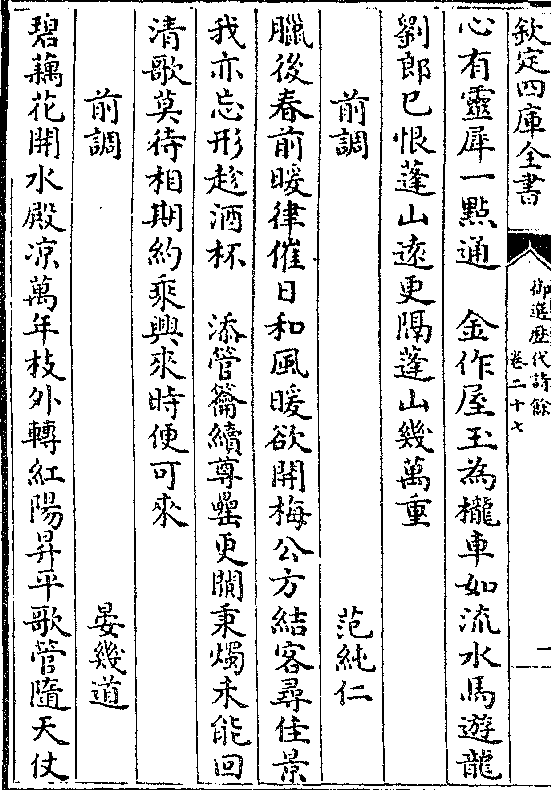 欽定四庫全書
御選歷代詩餘
卷二十七
一
心有靈犀一點通　金作屋玉為櫳車如流水馬遊龍
劉郎已恨蓬山遠更隔蓬山幾萬重
前調　范純仁
臘後春前暖律催日和風暖欲開梅公方結客尋佳景
我亦忘形趁酒杯　添管籥續尊罍更闌秉燭未能回
清歌莫待相期約乘興來時便可來
前調　晏幾道
碧藕花開水殿凉萬年枝外轉紅陽昇平歌管隨天仗